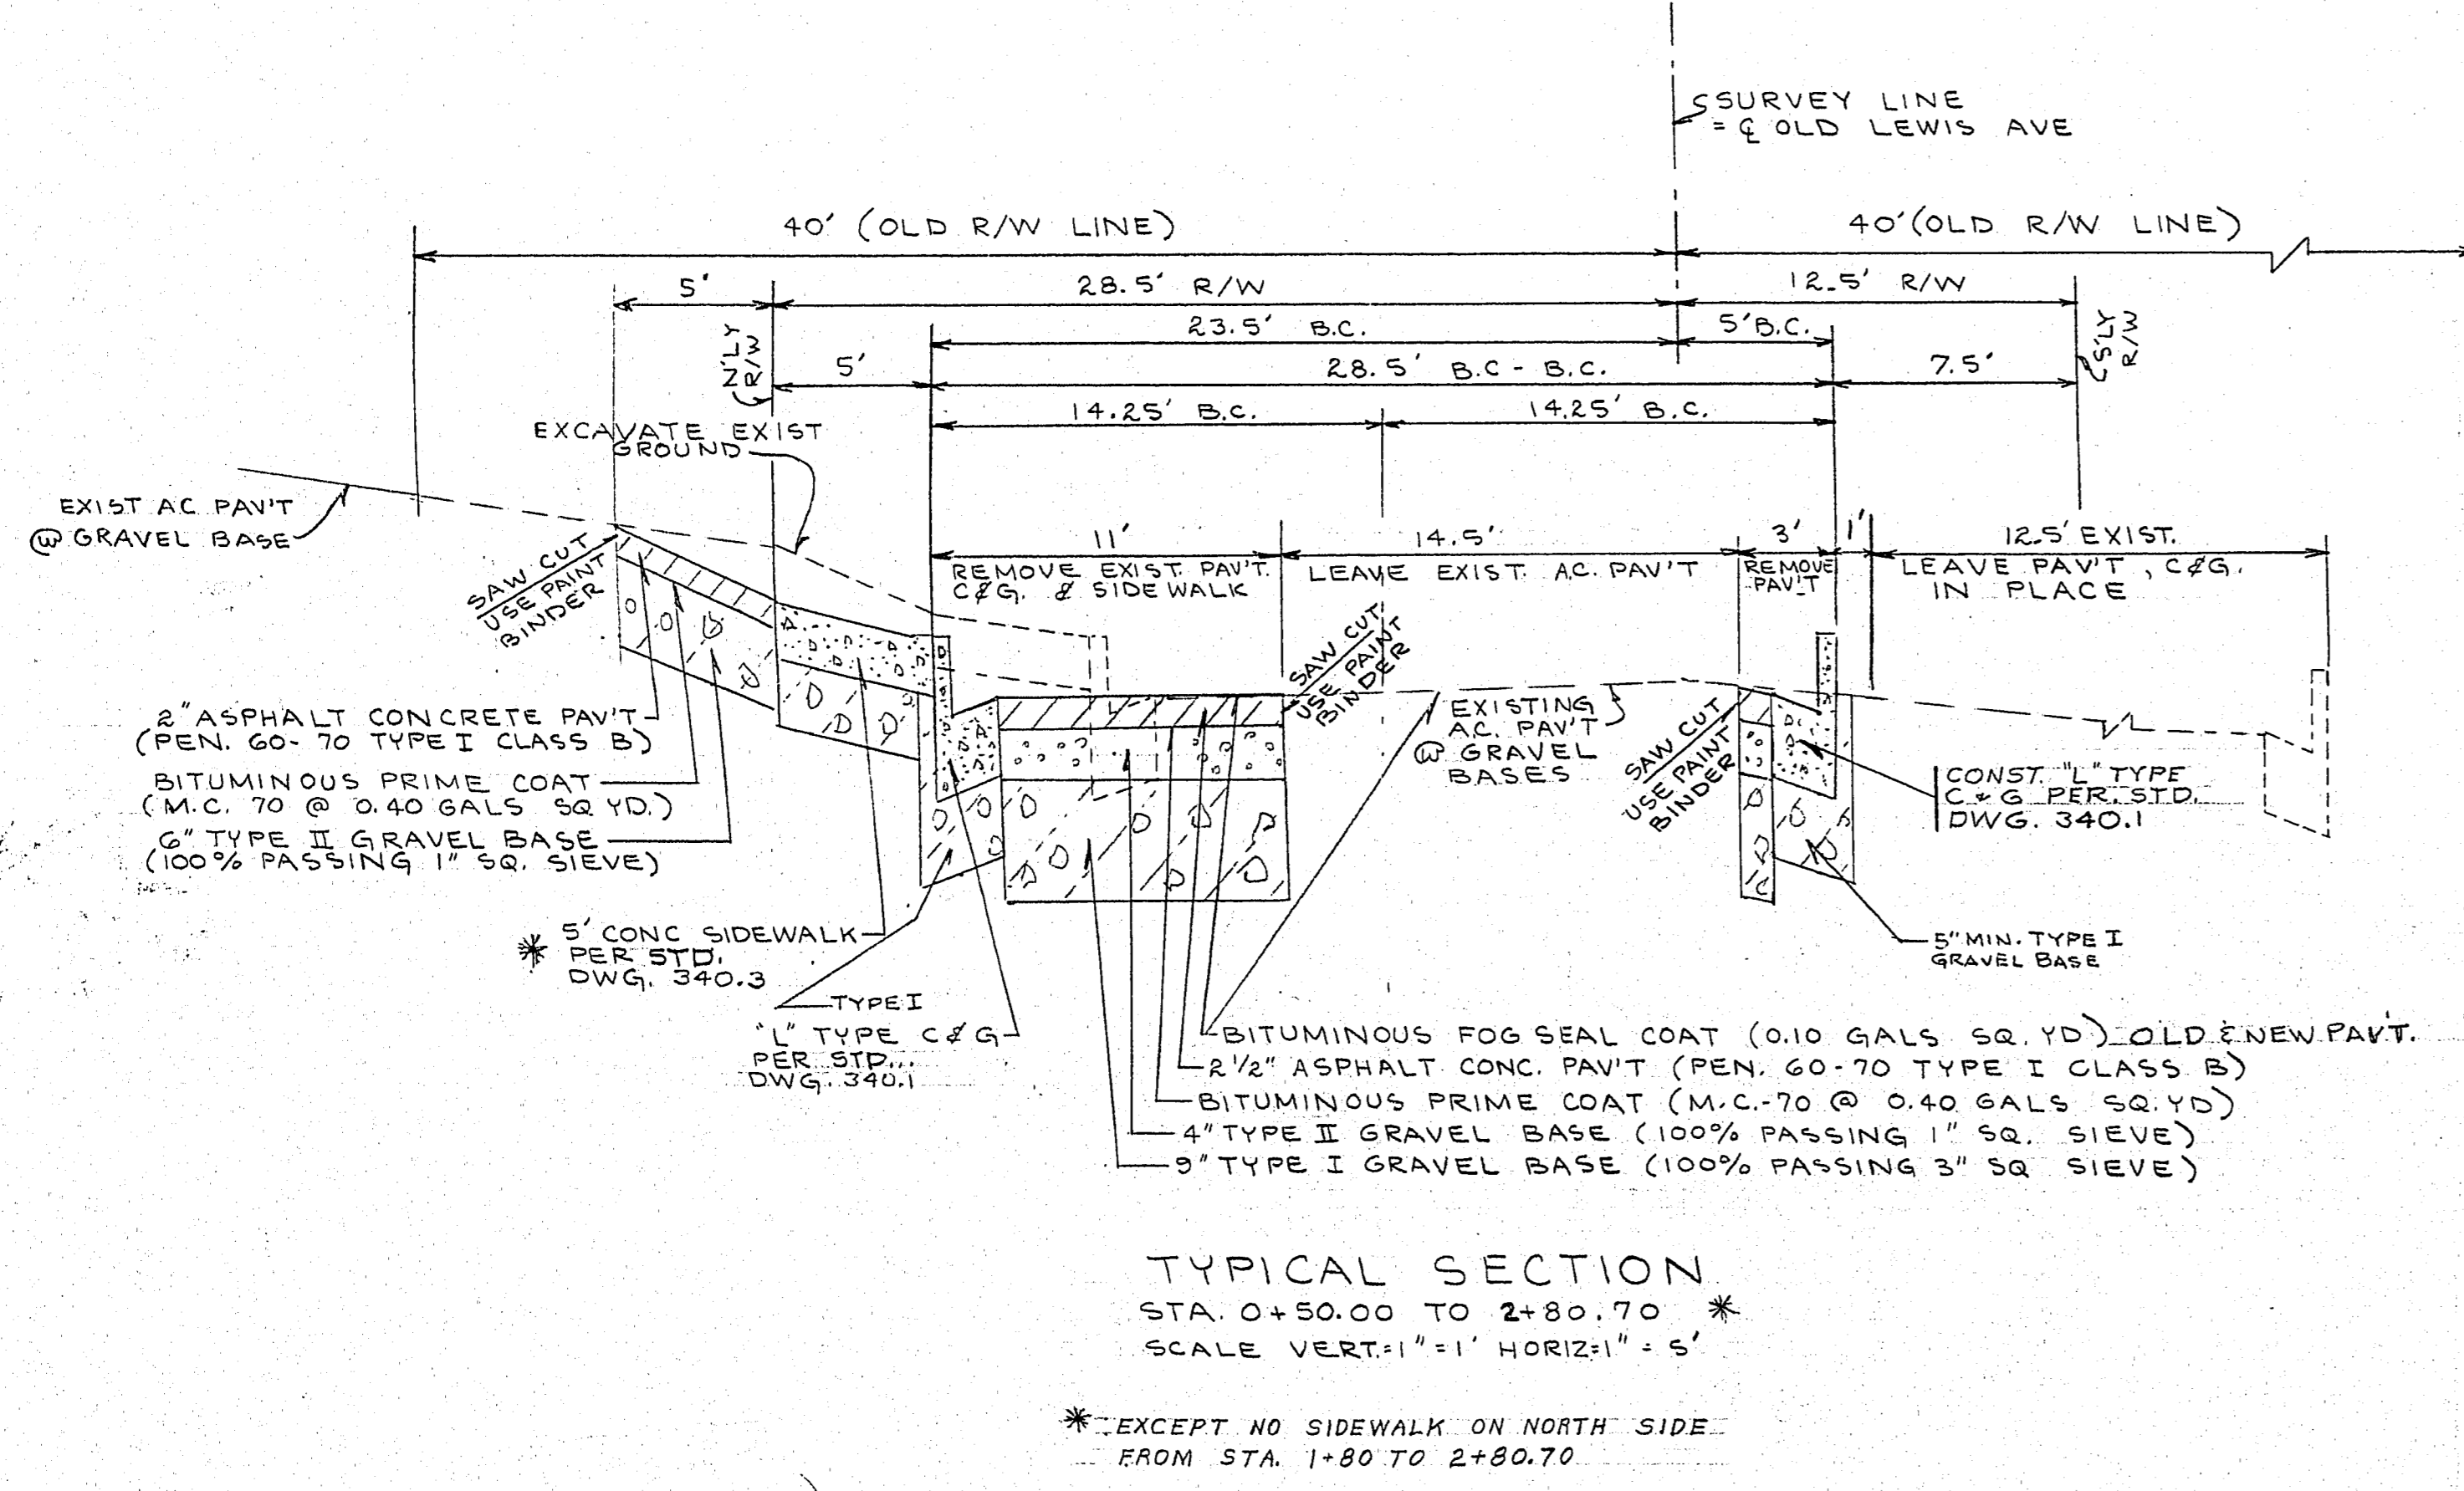 SURVEY LINE
= ℄ OLD LEWIS AVE
40' (OLD R/W LINE)
40' (OLD R/W LINE)
5'
28.5' R/W
12.5' R/W
N'LY
R/W
23.5' B.C.
5' B.C.
S'LY
R/W
5'
28.5' B.C - B.C.
7.5'
14.25' B.C.
14.25' B.C.
EXCAVATE EXIST
GROUND
EXIST AC PAV'T
@ GRAVEL BASE
11'
14.5'
3'
1'
12.5' EXIST.
REMOVE EXIST. PAV'T.
C&G. & SIDEWALK
LEAVE EXIST. A.C. PAV'T
REMOVE
PAV'T
LEAVE PAV'T, C&G.
IN PLACE
SAW CUT
USE PAINT
BINDER
SAW CUT
USE PAINT
BINDER
SAW CUT
USE PAINT
BINDER
EXISTING
A.C. PAV'T
@ GRAVEL
BASES
2" ASPHALT CONCRETE PAV'T
(PEN. 60-70 TYPE I CLASS B)
BITUMINOUS PRIME COAT
(M.C. 70 @ 0.40 GALS SQ YD.)
6" TYPE II GRAVEL BASE
(100% PASSING 1" SQ. SIEVE)
CONST. "L" TYPE
C & G PER. STD.
DWG. 340.1
* 5' CONC SIDEWALK
PER STD.
DWG. 340.3
5" MIN. TYPE I
GRAVEL BASE
TYPE I
"L" TYPE C & G
PER STD.
DWG. 340.1
BITUMINOUS FOG SEAL COAT (0.10 GALS SQ. YD) OLD & NEW PAV'T.
2 1/2" ASPHALT CONC. PAV'T (PEN. 60-70 TYPE I CLASS B)
BITUMINOUS PRIME COAT (M.C.-70 @ 0.40 GALS SQ.YD)
4" TYPE II GRAVEL BASE (100% PASSING 1" SQ. SIEVE)
9" TYPE I GRAVEL BASE (100% PASSING 3" SQ SIEVE)
TYPICAL SECTION
STA. 0+50.00 TO 2+80.70 *
SCALE VERT.=1"=1' HORIZ=1" = 5'
* EXCEPT NO SIDEWALK ON NORTH SIDE
FROM STA. 1+80 TO 2+80.70